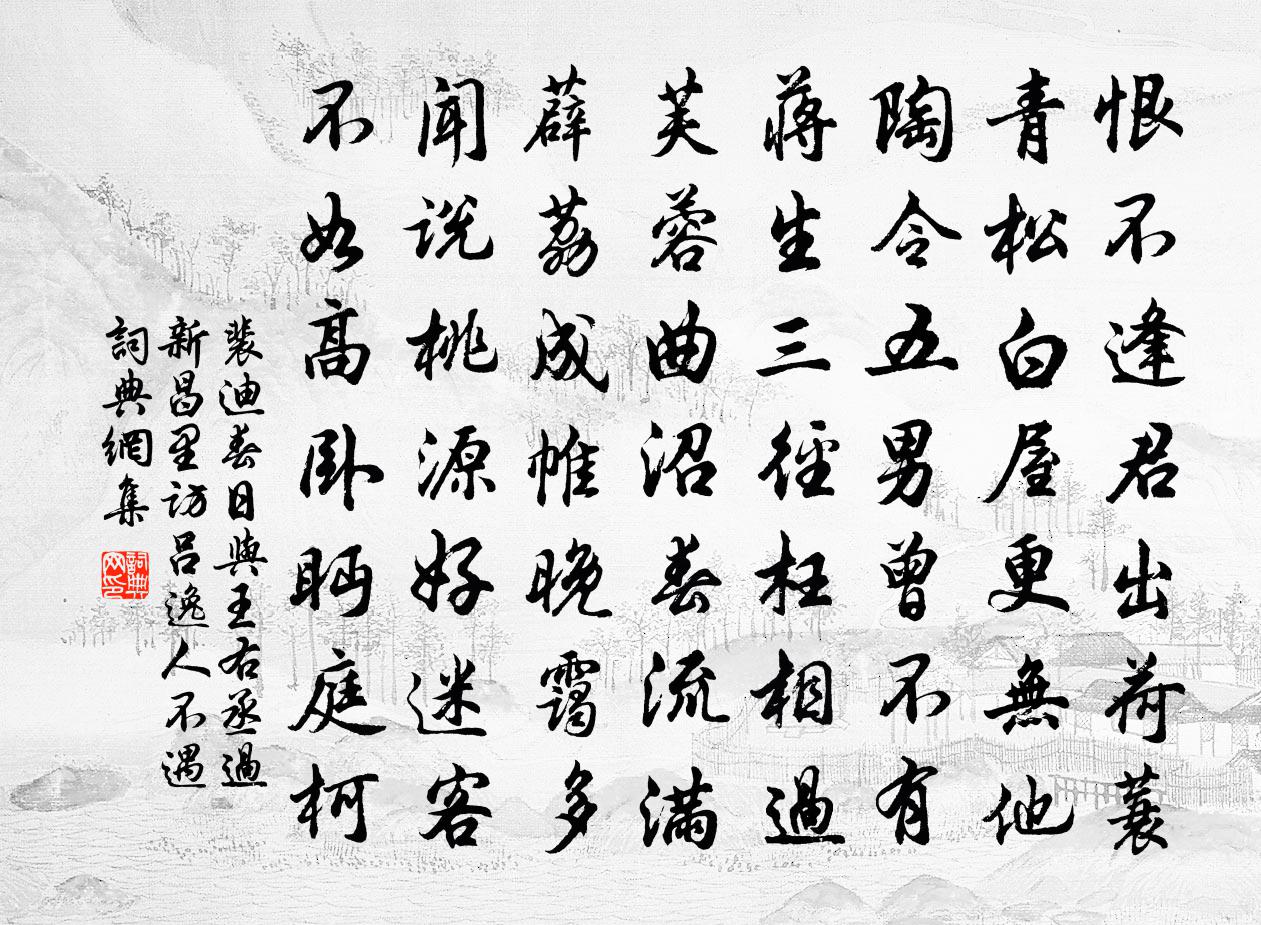 恨不逢君出荷蓑
青松白屋更無他
陶令五男曾不有
蔣生三徑枉相過
芙蓉曲沼春流滿
薜荔成帷晚靄多
聞說桃源好迷客
不如高卧眄庭柯
裴迪春日與王右丞過
新昌里訪呂逸人不遇
詞典網集
詞典網印